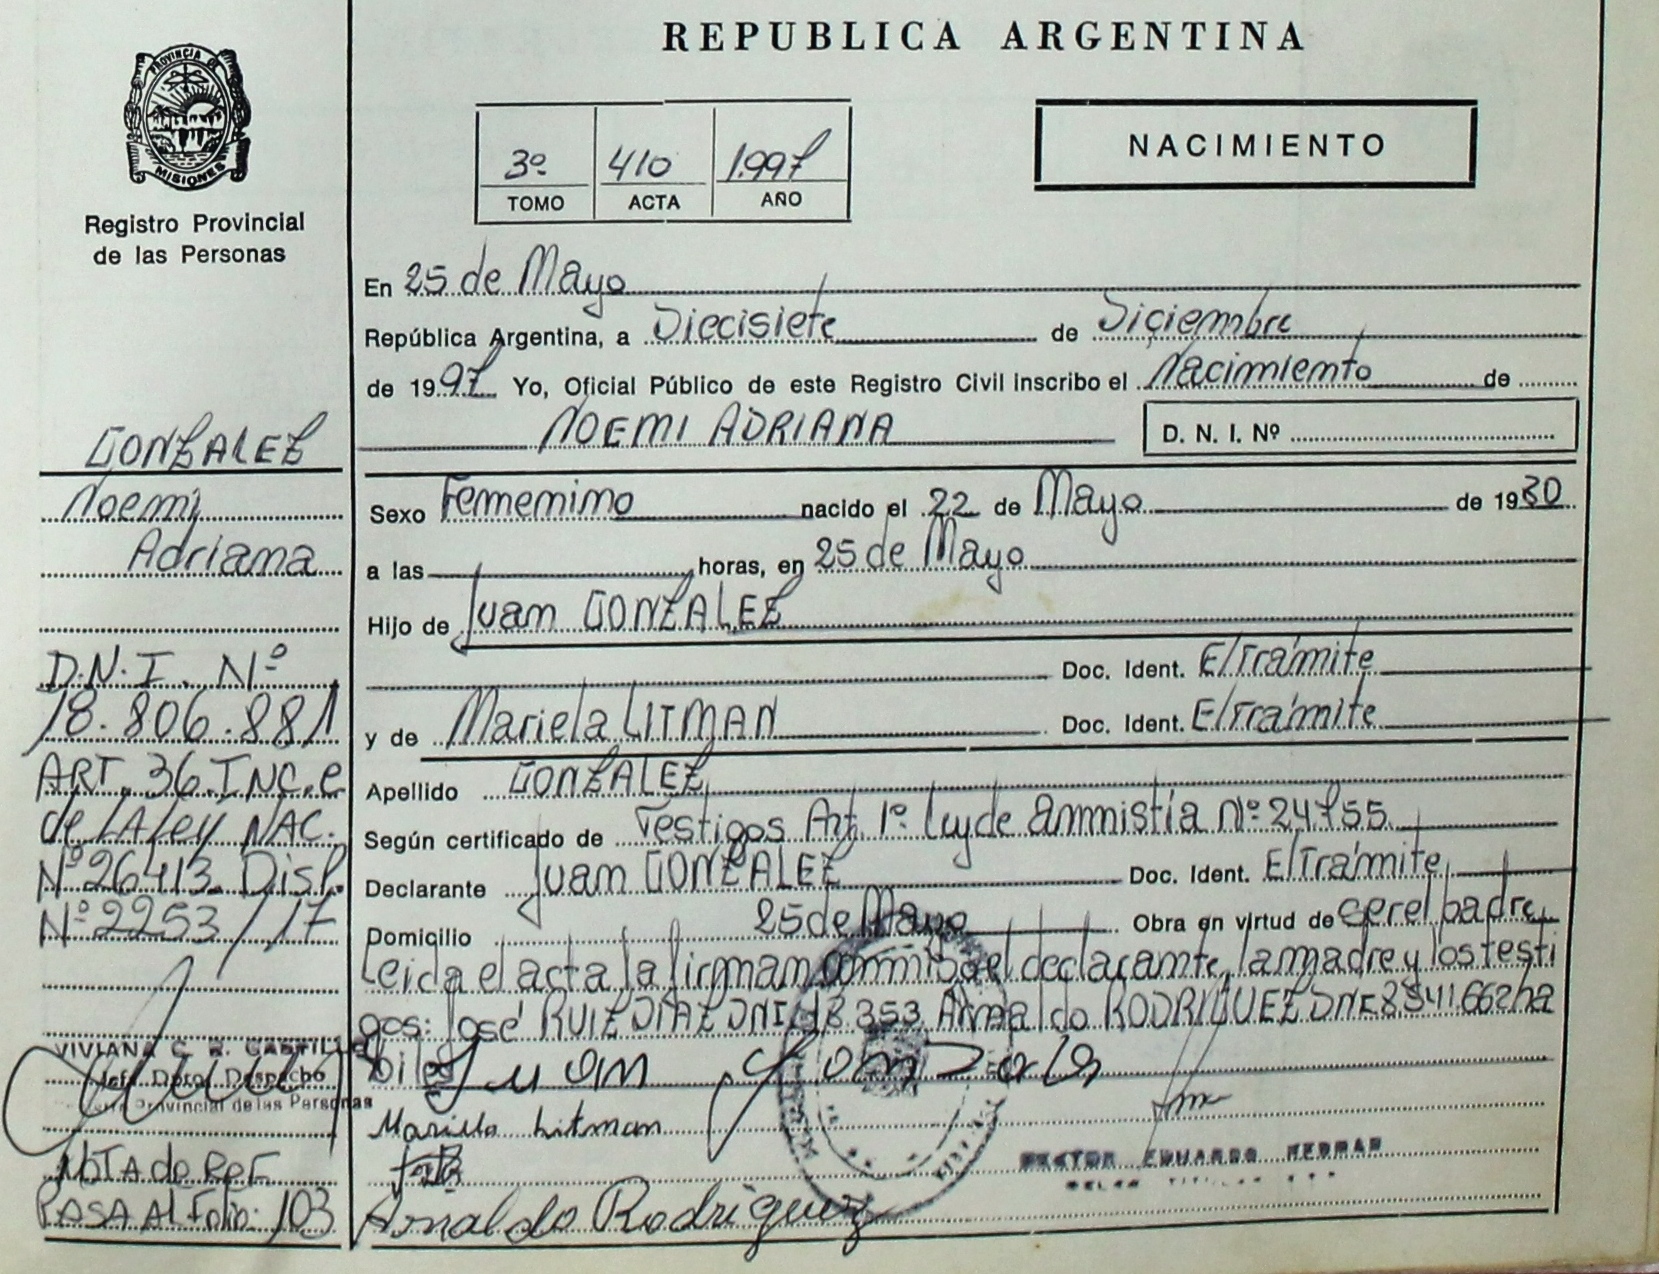 REPUBLICA ARGENTINA
PROVINCIA DE
MISIONES
Registro Provincial
de las Personas
3º 410 1.997
TOMO ACTA AÑO
NACIMIENTO
En 25 de Mayo
República Argentina, a Diecisiete de Diciembre
de 1997 Yo, Oficial Público de este Registro Civil inscribo el Nacimiento de
NOEMI ADRIANA D. N. I. Nº
GONZALEZ
Noemi
Adriana
D.N.I. Nº
18.806.881
ART. 36.INC.e
de LA ley NAC.
Nº 26413. Disp.
Nº 2253/17
VIVIANA C. R. CASTILLO
Jefa Dpto. Despacho
Provincial de las Personas
NOTA de REF
PASA Al Folio: 103
Sexo Femenino nacido el 22 de Mayo de 1980
a las horas, en 25 de Mayo
Hijo de Juan GONZALEZ
Doc. Ident. E/Trámite
y de Mariela LITMAN Doc. Ident. E/Trámite
Apellido GONZALEZ
Según certificado de Testigos Art. 1º Ley de Amnistía Nº 24755
Declarante Juan GONZALEZ Doc. Ident. E/Trámite
Domicilio 25 de Mayo Obra en virtud de ser el padre
Leida el acta la firman conmigo el declarante, la madre y los testi
gos: José RUIZ DIAZ DNI 353 Arnaldo RODRIGUEZ DNI 8541.662 ha
biles Juan Gonzales
Mariela Litman
HECTOR EDUARDO
Arnaldo Rodriguez